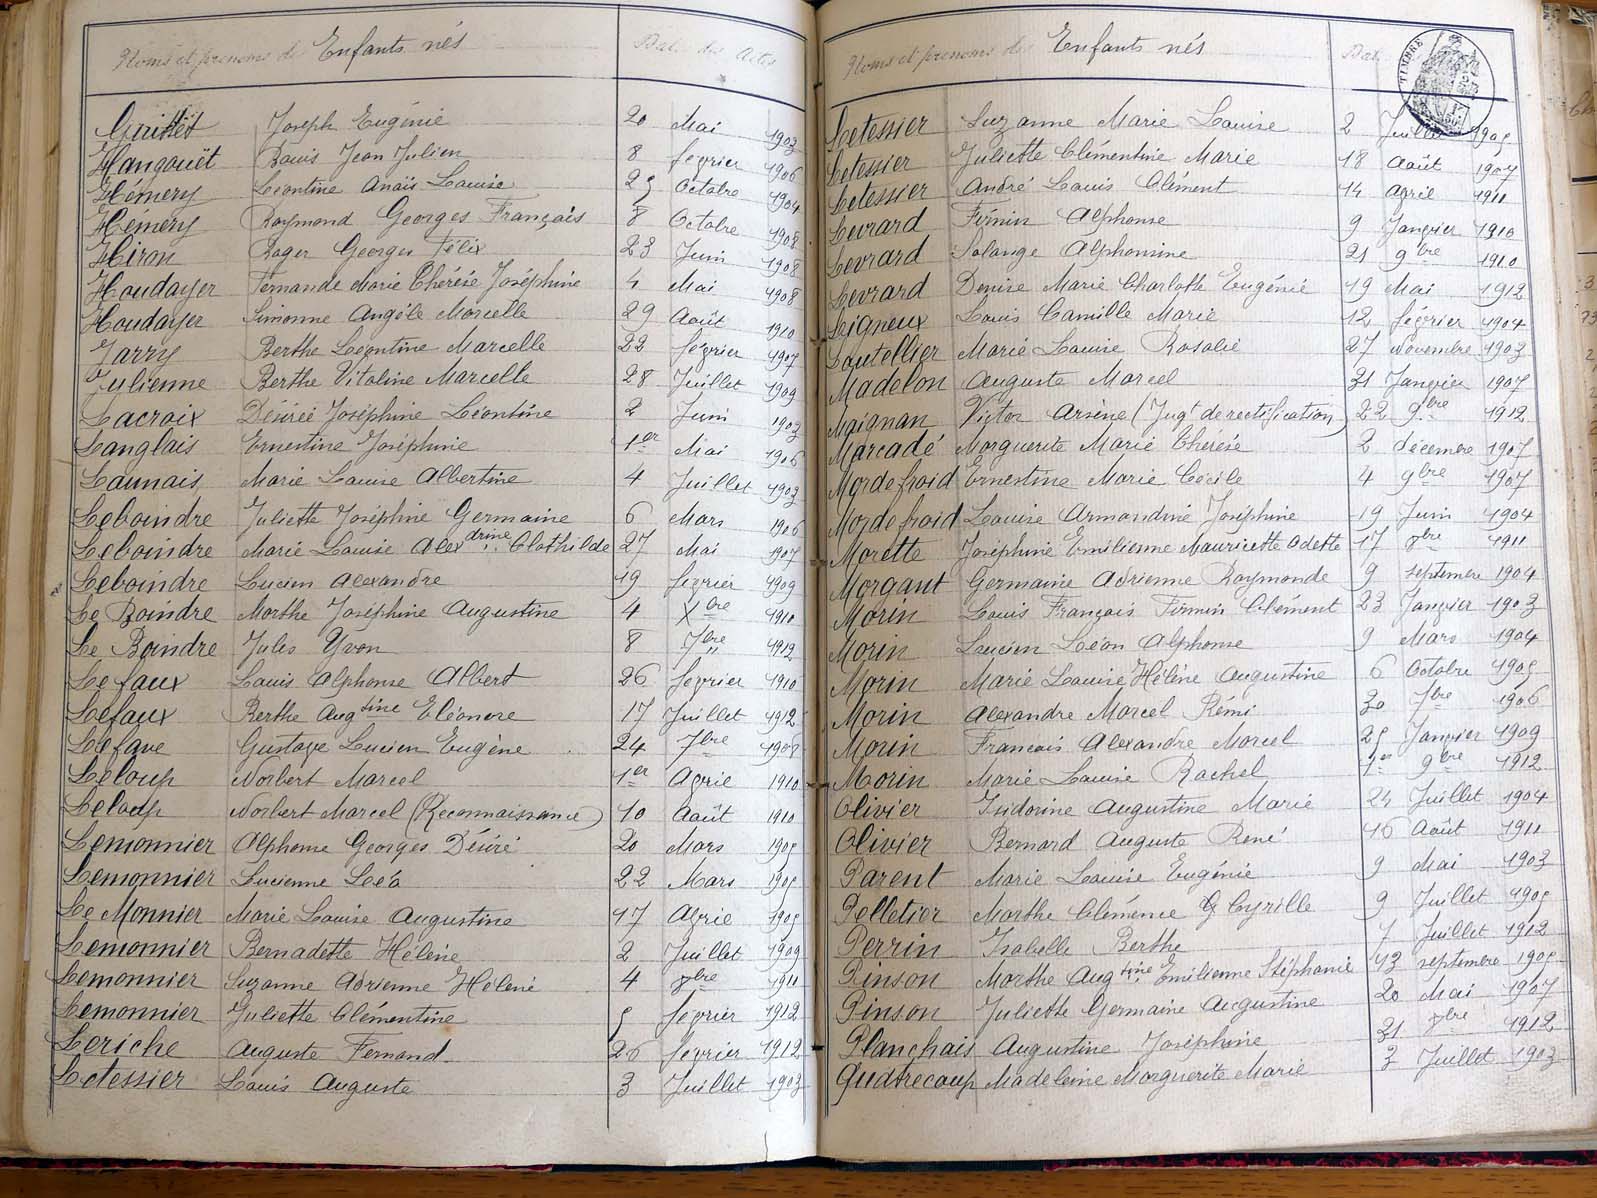 Noms et prénoms des Enfants nés Date des Actes
Joseph Eugénie 20 Mai 1903
Hangouët Louis Jean Julien 8 février 1906
Hémery Léontine Anaïs Louise 25 Octobre 1904
Hémery Raymond Georges François 8 Octobre 1908
Hiron Roger Georges Félix 23 Juin 1908
Houdayer Fernande Marie Thérèse Joséphine 4 Mai 1908
Houdayer Simonne Angèle Marcelle 29 Août 1910
Jarry Berthe Léontine Marcelle 22 février 1907
Julienne Berthe Vitaline Marcelle 28 Juillet 1909
Lacroix Désirée Joséphine Léontine 2 Juin 1903
Langlais Ernestine Joséphine 1er Mai 1906
Launais Marie Louise Albertine 4 Juillet 1903
Leboindre Juliette Joséphine Germaine 6 Mars 1906
Leboindre Marie Louise Alexdrine Clothilde 27 Mai 1907
Leboindre Lucien Alexandre 19 février 1909
Le Boindre Marthe Joséphine Augustine 4 Xbre 1910
Le Boindre Jules Yvon 8 7bre 1912
Lefaux Louis Alphonse Albert 26 février 1910
Lefaux Berthe Augtine Eléonore 17 Juillet 1912
Lefave Gustave Lucien Eugène 24 7bre 1908
Leloup Norbert Marcel 1er Avril 1910
Leloup Norbert Marcel (Reconnaissance) 10 Août 1910
Lemonnier Alphonse Georges Désiré 20 Mars 1905
Lemonnier Lucienne Léa 22 Mars 1905
Le Monnier Marie Louise Augustine 17 Avril 1905
Lemonnier Bernadette Hélène 2 Juillet 1909
Lemonnier Suzanne Adrienne Hélène 4 8bre 1911
Lemonnier Juliette Clémentine 5 février 1912
Leriche Auguste Fernand 26 février 1912
Letessier Louis Auguste 3 Juillet 1903
Noms et prénoms des Enfants nés Dat
TIMBRE
Letessier Suzanne Marie Louise 2 Juillet 1905
Letessier Juliette Clémentine Marie 18 Août 1907
Letessier André Louis Clément 14 Avril 1911
Levrard Firmin Alphonse 9 Janvier 1910
Levrard Solange Alphonsine 21 9bre 1910
Levrard Denise Marie Charlotte Eugénie 19 Mai 1912
Ligneux Louis Camille Marie 12 février 1904
Loutellier Marie Louise Rosalie 27 novembre 1903
Madelon Auguste Marcel 31 Janvier 1907
Maignan Victor Arsène (Jugt de rectification) 22 9bre 1912
Marcadé Marguerite Marie Thérèse 2 décembre 1907
Mordefroid Ernestine Marie Cécile 4 9bre 1907
Mordefroid Louise Armandine Joséphine 19 Juin 1904
Morette Joséphine Emilienne Mauricette Odette 17 8bre 1911
Morgant Germaine Adrienne Raymonde 9 septembre 1904
Morin Louis François Firmin Clément 23 Janvier 1903
Morin Lucien Léon Alphonse 9 Mars 1904
Morin Marie Louise Hélène Augustine 6 Octobre 1905
Morin Alexandre Marcel Rémi 30 7bre 1906
Morin François Alexandre Marcel 25 Janvier 1909
Morin Marie Louise Rachel 1er 9bre 1912
Olivier Isidorine Augustine Marie 24 Juillet 1904
Olivier Bernard Auguste René 16 Août 1911
Parent Marie Louise Eugénie 9 Mai 1903
Pelletier Marthe Clémence G Cyrille 9 Juillet 1905
Perrin Isabelle Berthe 7 Juillet 1912
Pinson Marthe Augtine Emilienne Stéphanie 13 septembre 1905
Pinson Juliette Germaine Augustine 20 Mai 1907
Planchais Augustine Joséphine 31 8bre 1912
Quatrecoup Madeleine Marguerite Marie 3 Juillet 1903